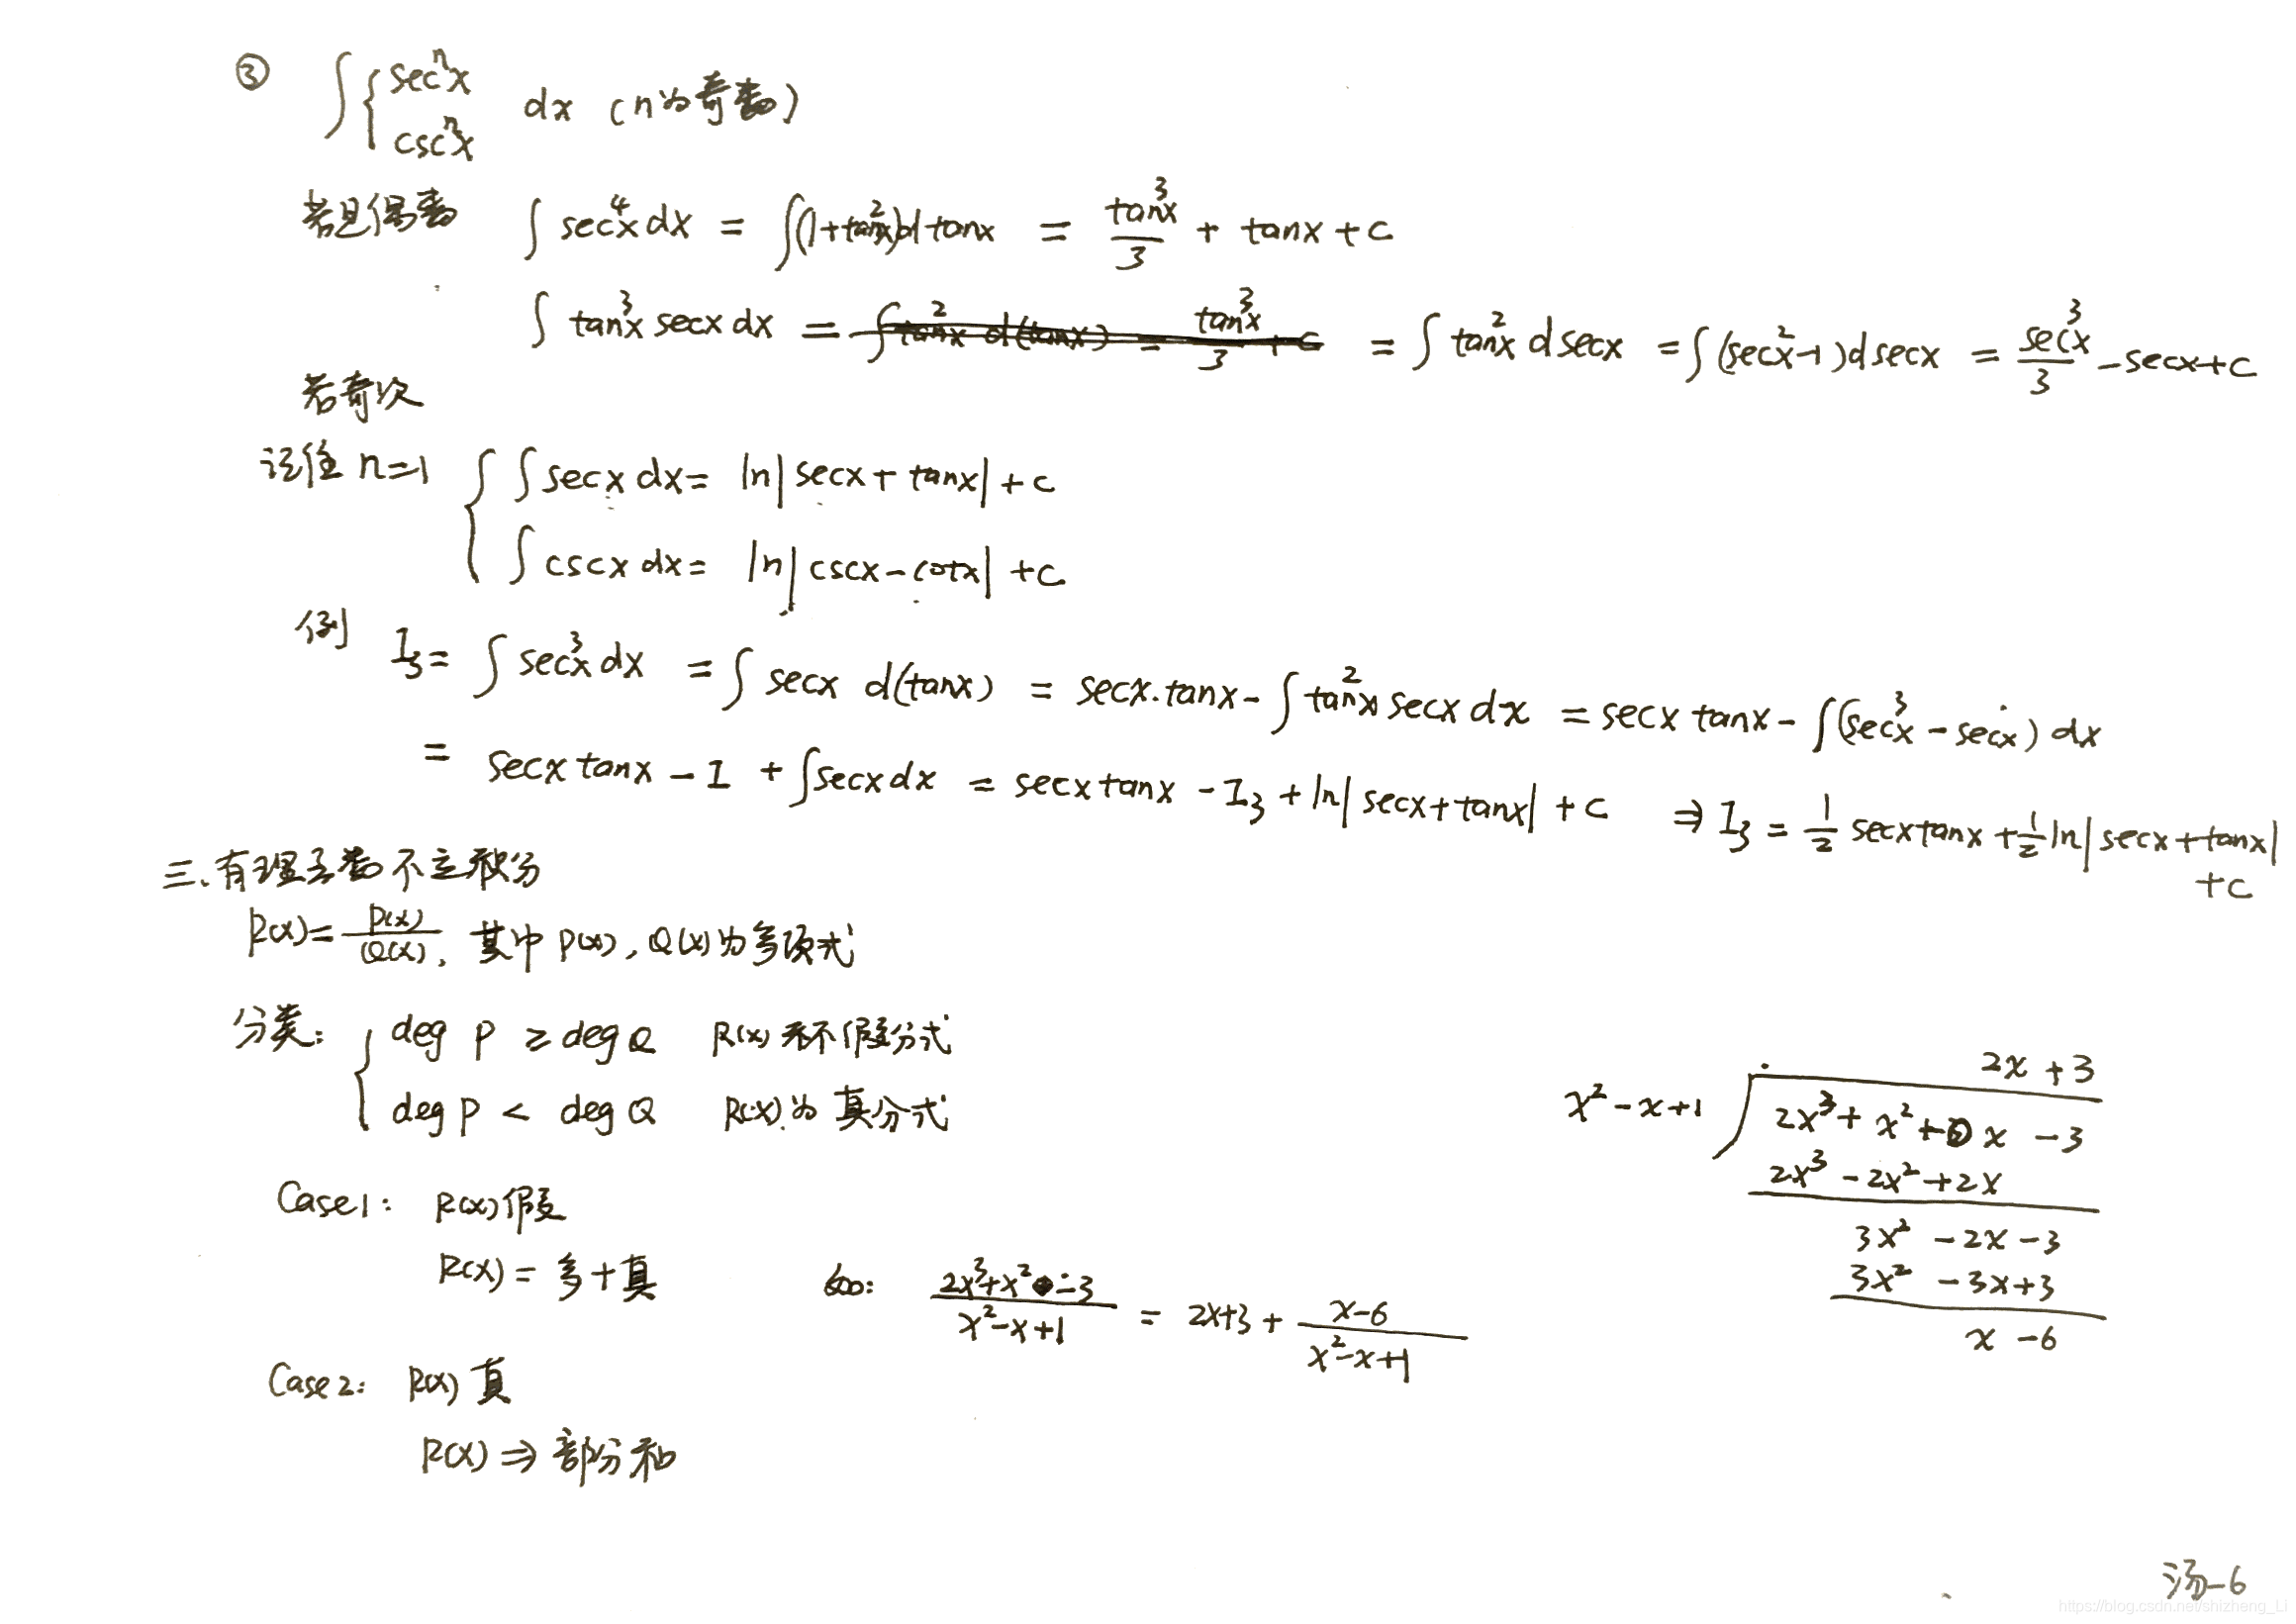 ③ ∫{secⁿx cscⁿx dx (n为奇数)
若是偶数 ∫ sec⁴x dx = ∫(1+tan²x)d tanx = tan³x/3 + tanx + c
∫ tan³x secx dx = ∫ tan²x d(tanx) = tan³x/3 + c = ∫ tan²x d secx = ∫(sec²x-1)d secx = sec³x/3 - secx + c
若奇次
记住 n=1 { ∫ secx dx = ln|secx + tanx| + c
∫ cscx dx = ln|cscx - cotx| + c
例 I₃ = ∫ sec³x dx = ∫ secx d(tanx) = secx·tanx - ∫ tan²x secx dx = secx tanx - ∫(sec³x - secx) dx
= secx tanx - I + ∫secx dx = secx tanx - I₃ + ln|secx + tanx| + c ⇒ I₃ = 1/2 secx tanx + 1/2 ln|secx + tanx|
+c
三、有理函数不定积分
R(x) = P(x)/Q(x), 其中 P(x), Q(x)为多项式
分类: { deg P ≥ deg Q R(x) 假分式
deg P < deg Q R(x)为 真分式
2x + 3
x² - x + 1 2x³ + x² + 0x - 3
2x³ - 2x² + 2x
3x² - 2x - 3
3x² - 3x + 3
x - 6
Case1: R(x)假
R(x) = 多 + 真 如: 2x³+x²-3/x²-x+1 = 2x+3 + x-6/x²-x+1
Case2: R(x)真
R(x) ⇒ 部分和
汤-6
https://blog.csdn.net/shizheng_Li